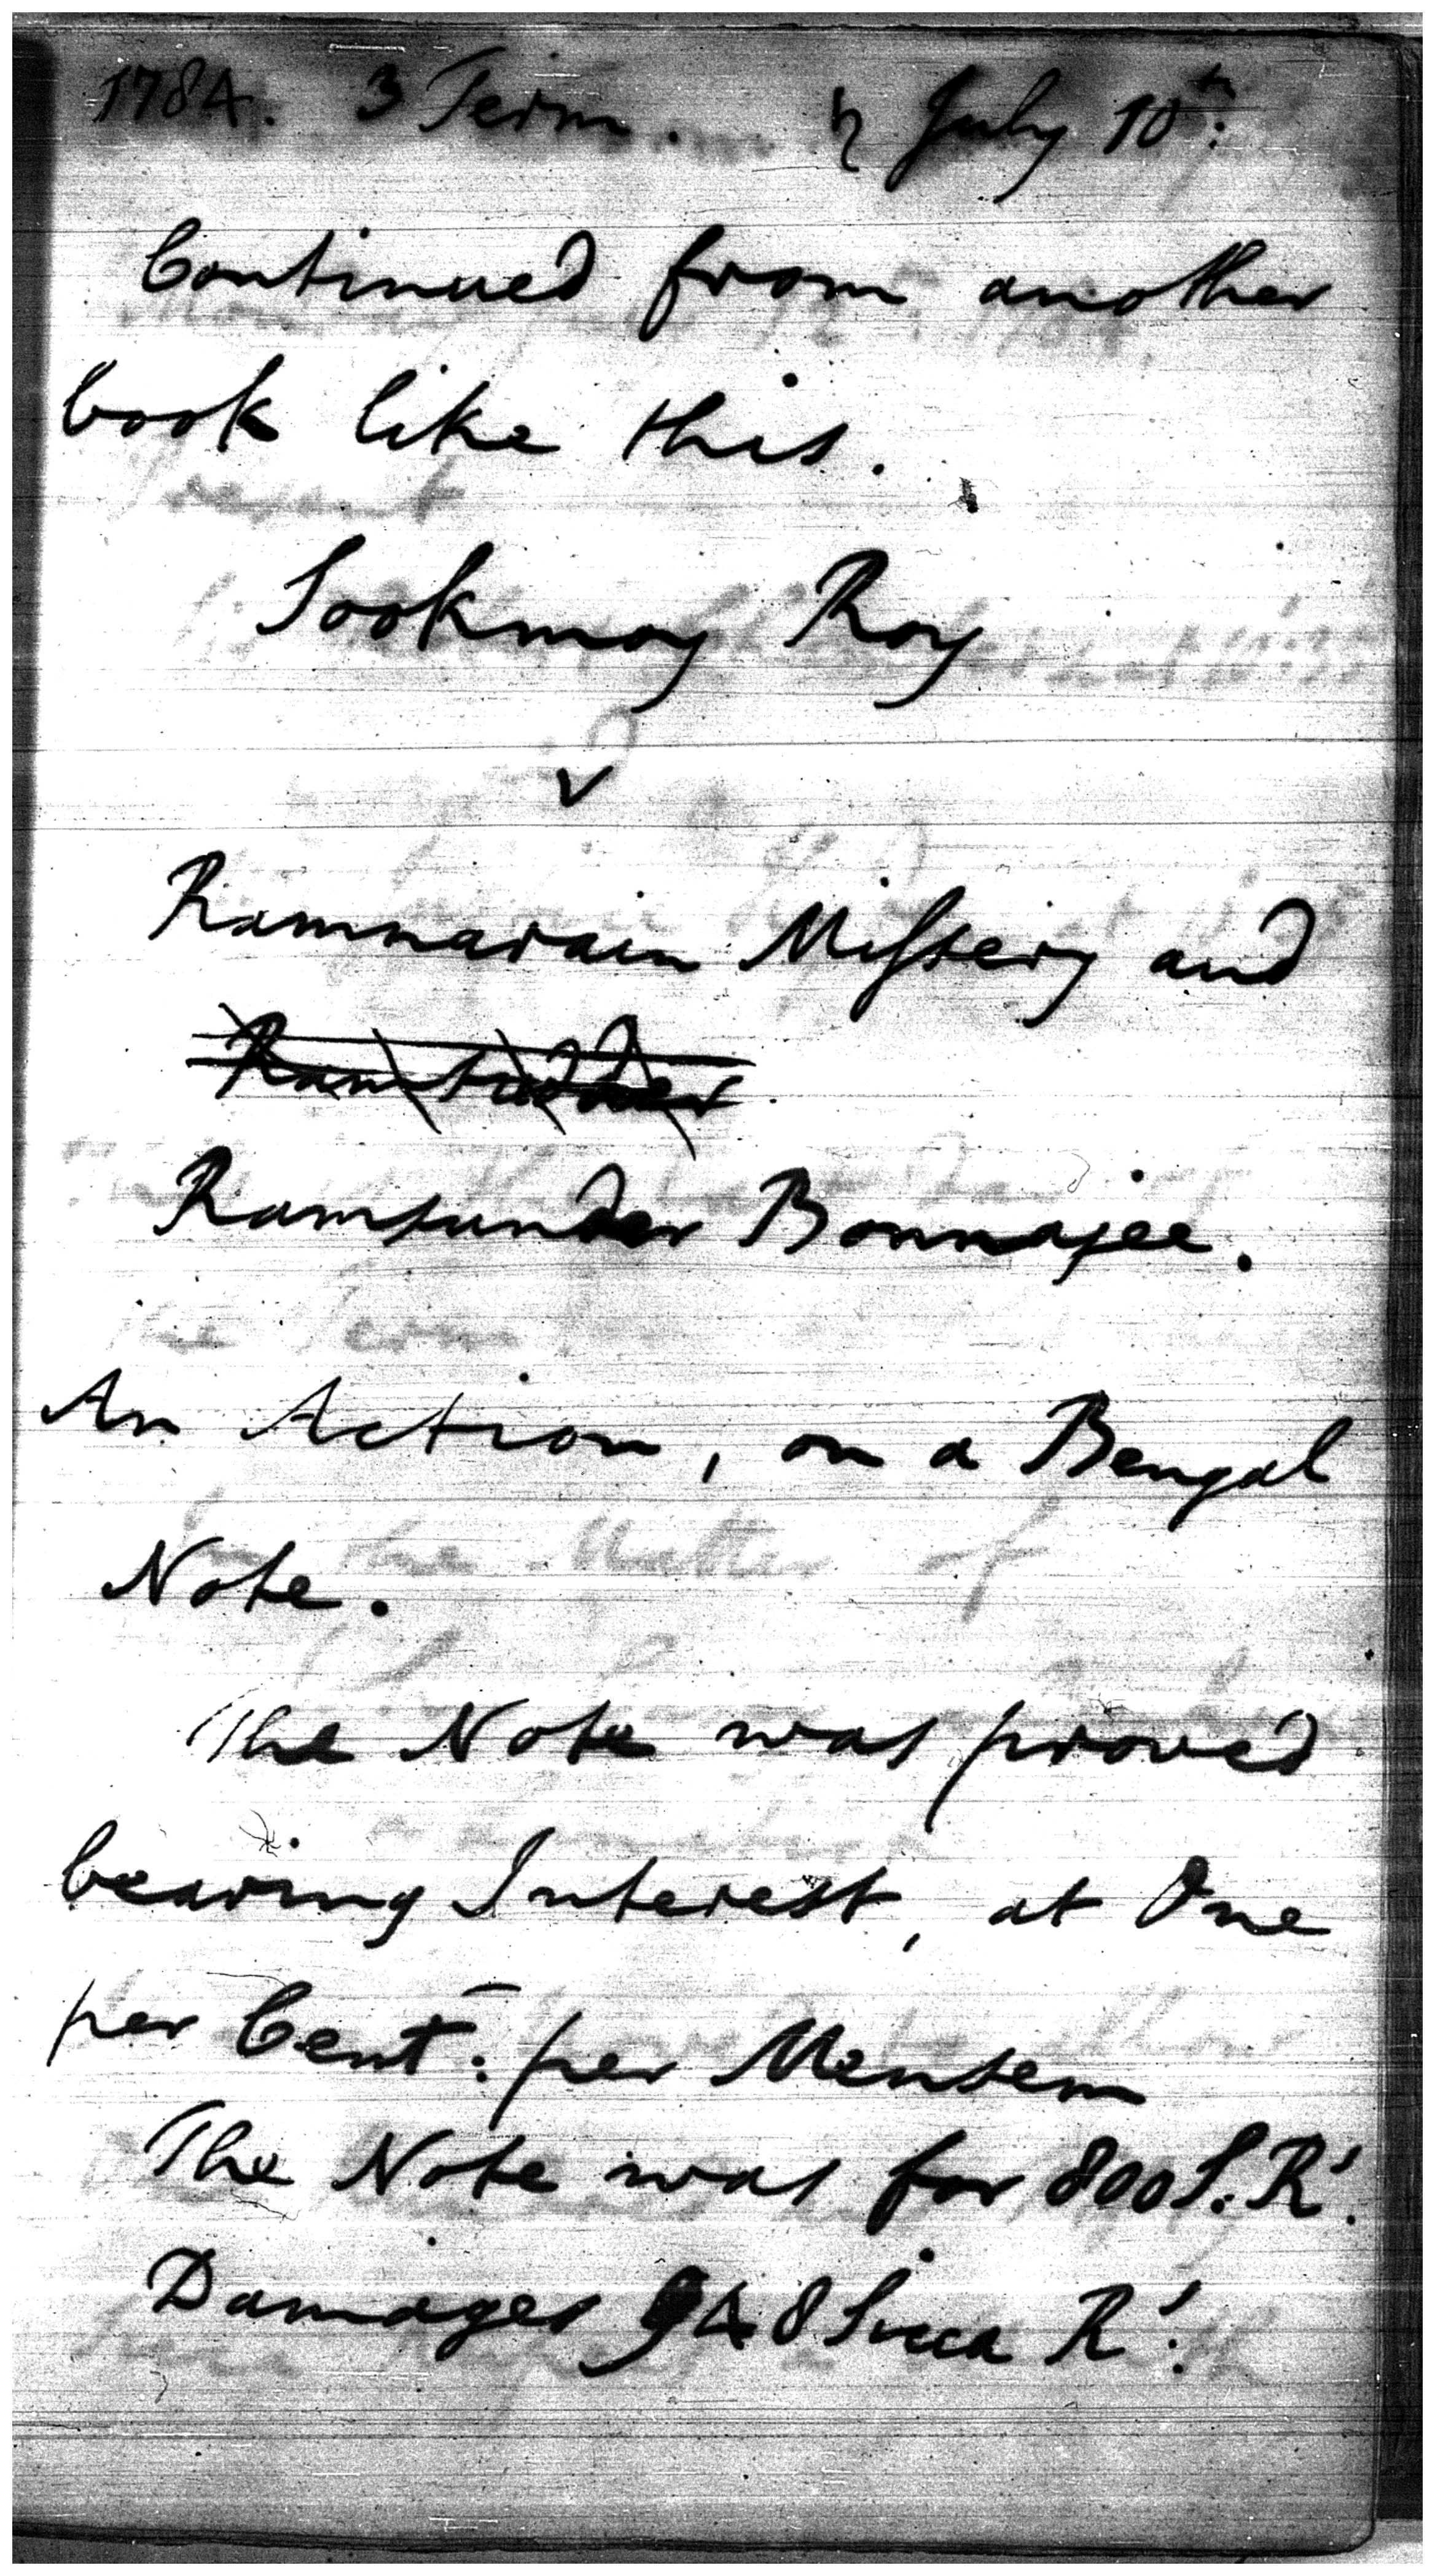 1784. 3 Term. ♄ July 10th:
Continued from another
book like this.
Sookmoy Roy
v
Ramnarain Missery and
Ramsunder Bonnajee.
An Action, on a Bengal
Note.
The Note was proved
bearing Interest, at One
per Cent: per Mensem
The Note was for 800 S. Rs.
Damages 948 Sicca Rs.